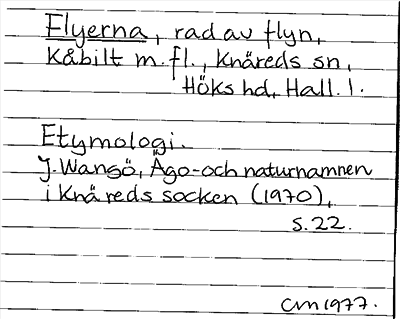 Flyerna, rad av flyn,
Kåbilt m.fl., Knäreds sn,
Höks hd, Hall. l.
Etymologi.
J. Wangö, Ägo- och naturnamnen
i Knäreds socken (1970),
s. 22.
CM 1977.